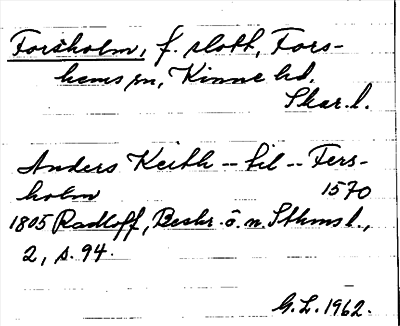 Forsholm, f. slott, Fors-
hems sn, Kinne hd.
Skar. l.
Anders Keith -- til -- Fers-
holm 1570
1805 Radloff, Beskr. ö. n. Sthms l.,
2, s. 94.
G. L. 1962.